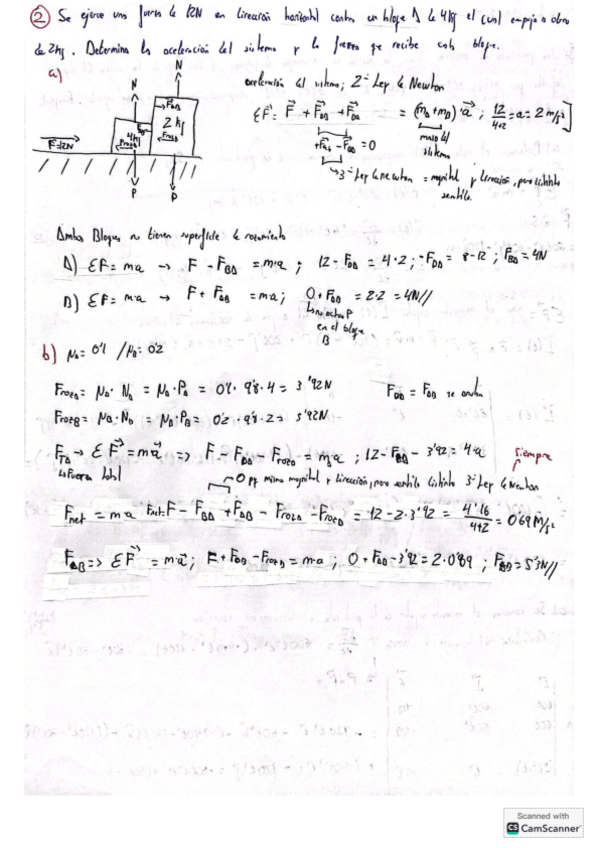 ② Se ejerce una fuerza de 12N en dirección horizontal contra un bloque A de 4 kg el cual empuja a otro
de 2 kg. Determina la aceleración del sistema y la fuerza que recibe cada bloque.
a)
N
N
F=12N
4kg
2 kg
P
P
aceleración del sistema; 2ª Ley de Newton
ΣF = F + F + F = (mA+mB)·a ; 12/4+2 = a = 2 m/s²
= 0
masa del
sistema
3ª Ley de Newton = magnitud y dirección, pero distinto
sentido.
Ambos Bloques no tienen superficie de rozamiento
A) ΣF = ma → F - FBA = m·a ; 12 - FBA = 4·2 ; -FBA = 8-12 ; FBA = 4N
B) ΣF = ma → F + FAB = ma ; 0 + FAB = 2·2 = 4N//
en el bloque
B
b) μA = 0'1 / μB = 0'2
FrozA = μA·NA = μA·PA = 0'1·9'8·4 = 3'92N
FrozB = μB·NB = μB·PB = 0'2·9'8·2 = 3'92N
se anulan
→ ΣF = ma => F - FBA - FrozA = mAa ; 12 - FBA - 3'92 = 4·a
Fuerza total
siempre
0 pq misma magnitud y dirección, pero sentido distinto 3ª Ley de Newton
Fnet = ma Fnet: F - FBA + FAB - FrozA - FrozB = 12 - 2·3'92 = 4'16/4+2 = 0'69 m/s²
FAB => ΣF = m·a ; F + FAB - FrozB = ma ; 0 + FAB - 3'92 = 2·0'69 ; = 5'3N//
Scanned with
CS CamScanner